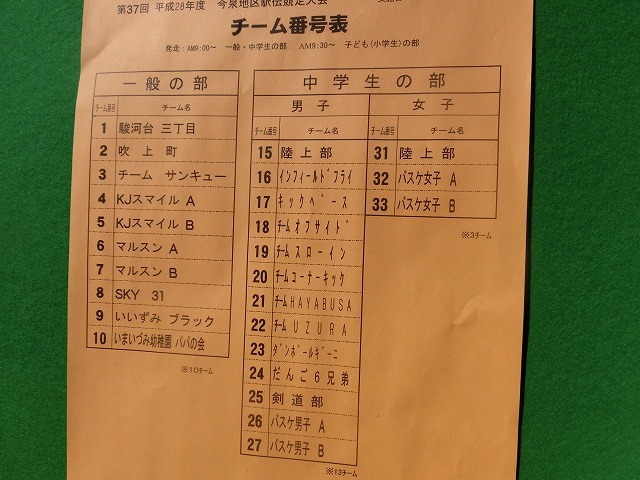 第37回 平成28年度 今泉地区駅伝競走大会
チーム番号表
発走:AM9:00~ 一般・中学生の部 AM9:30~ 子ども(小学生)の部
一般の部
チーム番号 チーム名
1 駿河台 三丁目
2 吹上町
3 チーム サンキュー
4 KJスマイル A
5 KJスマイル B
6 マルスン A
7 マルスン B
8 SKY 31
9 いいずみ ブラック
10 いまいづみ幼稚園 パパの会
※10チーム
中学生の部
男子
チーム番号 チーム名
15 陸上部
16 インフィールドフライ
17 キックベース
18 チームオフサイド
19 チームスローイン
20 チームコーナーキック
21 チームHAYABUSA
22 チームUZURA
23 ダンボールギーニ
24 だんご6兄弟
25 剣道部
26 バスケ男子 A
27 バスケ男子 B
※13チーム
女子
チーム番号 チーム名
31 陸上部
32 バスケ女子 A
33 バスケ女子 B
※3チーム